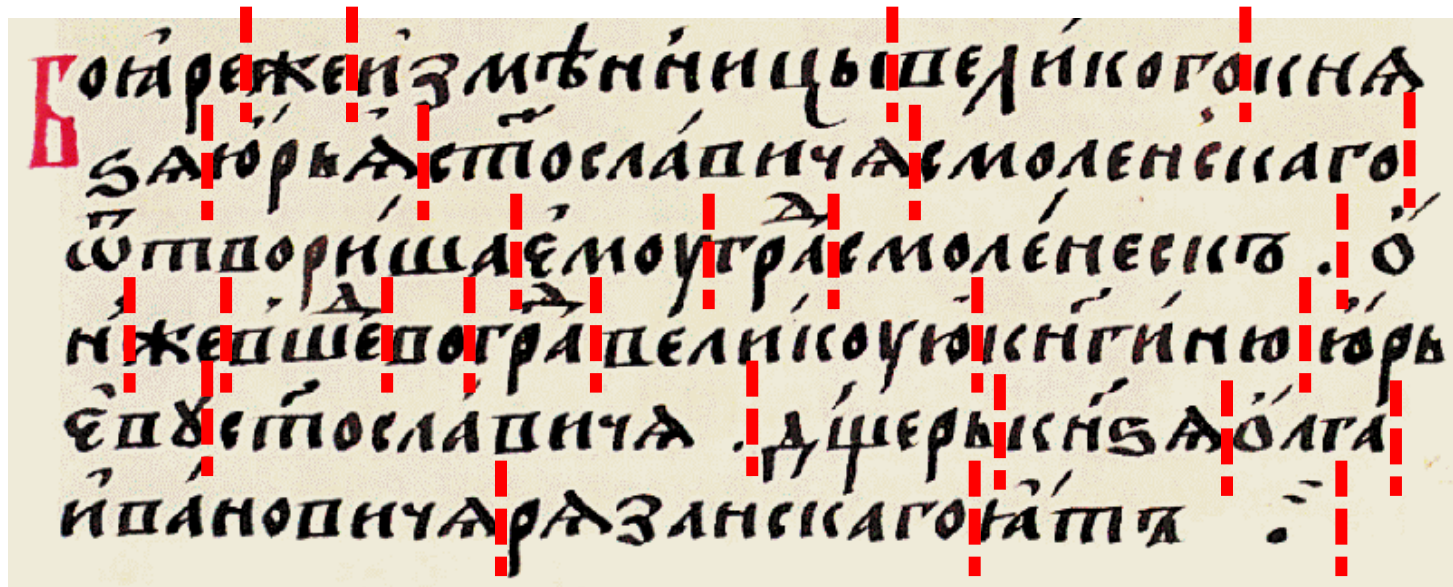 Боꙗре же измѣнницы великого кнѧ
ѕѧ юрьѧ ст҃ославичѧ смоленскаго
ѿтвориша ємоу граⷣ смоленескъ . ѻ
ни же вшеⷣ во граⷣ великоую кн҃гиню юрь
євꙋ ст҃ославичѧ . дщерь кн҃ѕѧ ѻлга
ивановичѧ рѧзанскаго ꙗтъ ⁘